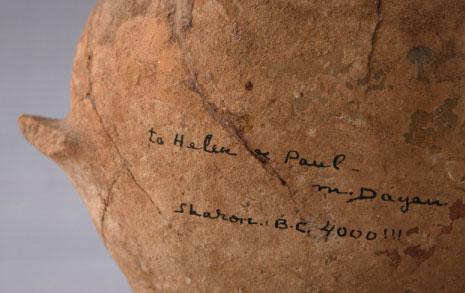 to Helen & Paul-
m. Dayan.
Sharon. B.C. 4000!!!